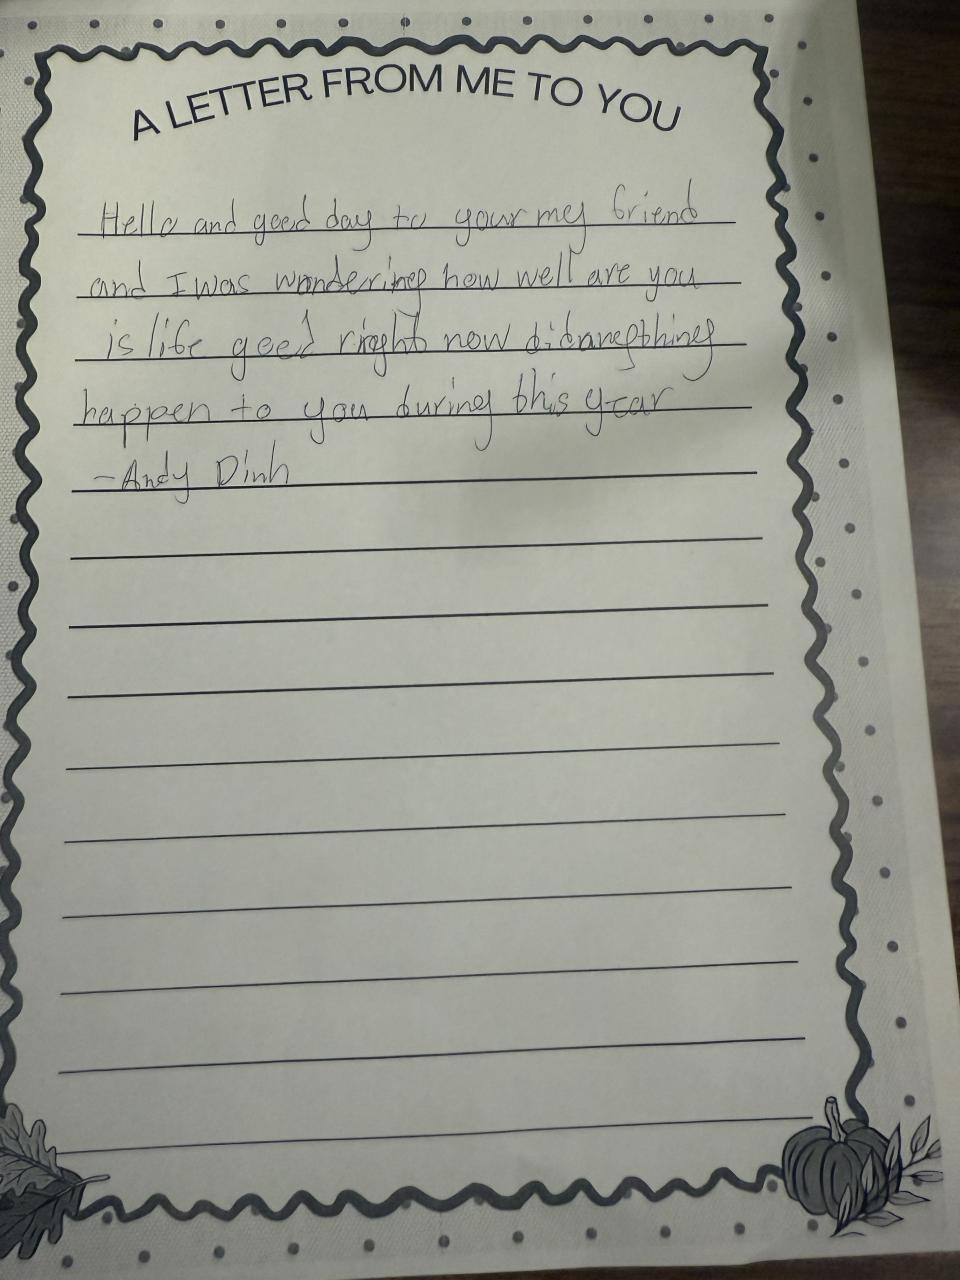 A LETTER FROM ME TO YOU
Hello and good day to your my friend
and I was wondering how well are you
is life good right now did anything
happen to you during this year
- Andy Dinh